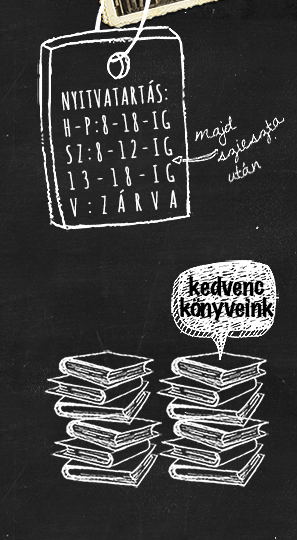 NYITVATARTÁS:
H-P:8-18-IG
SZ:8-12-IG
13-18-IG
V:ZÁRVA
majd
szieszta
után
kedvenc
könyveink